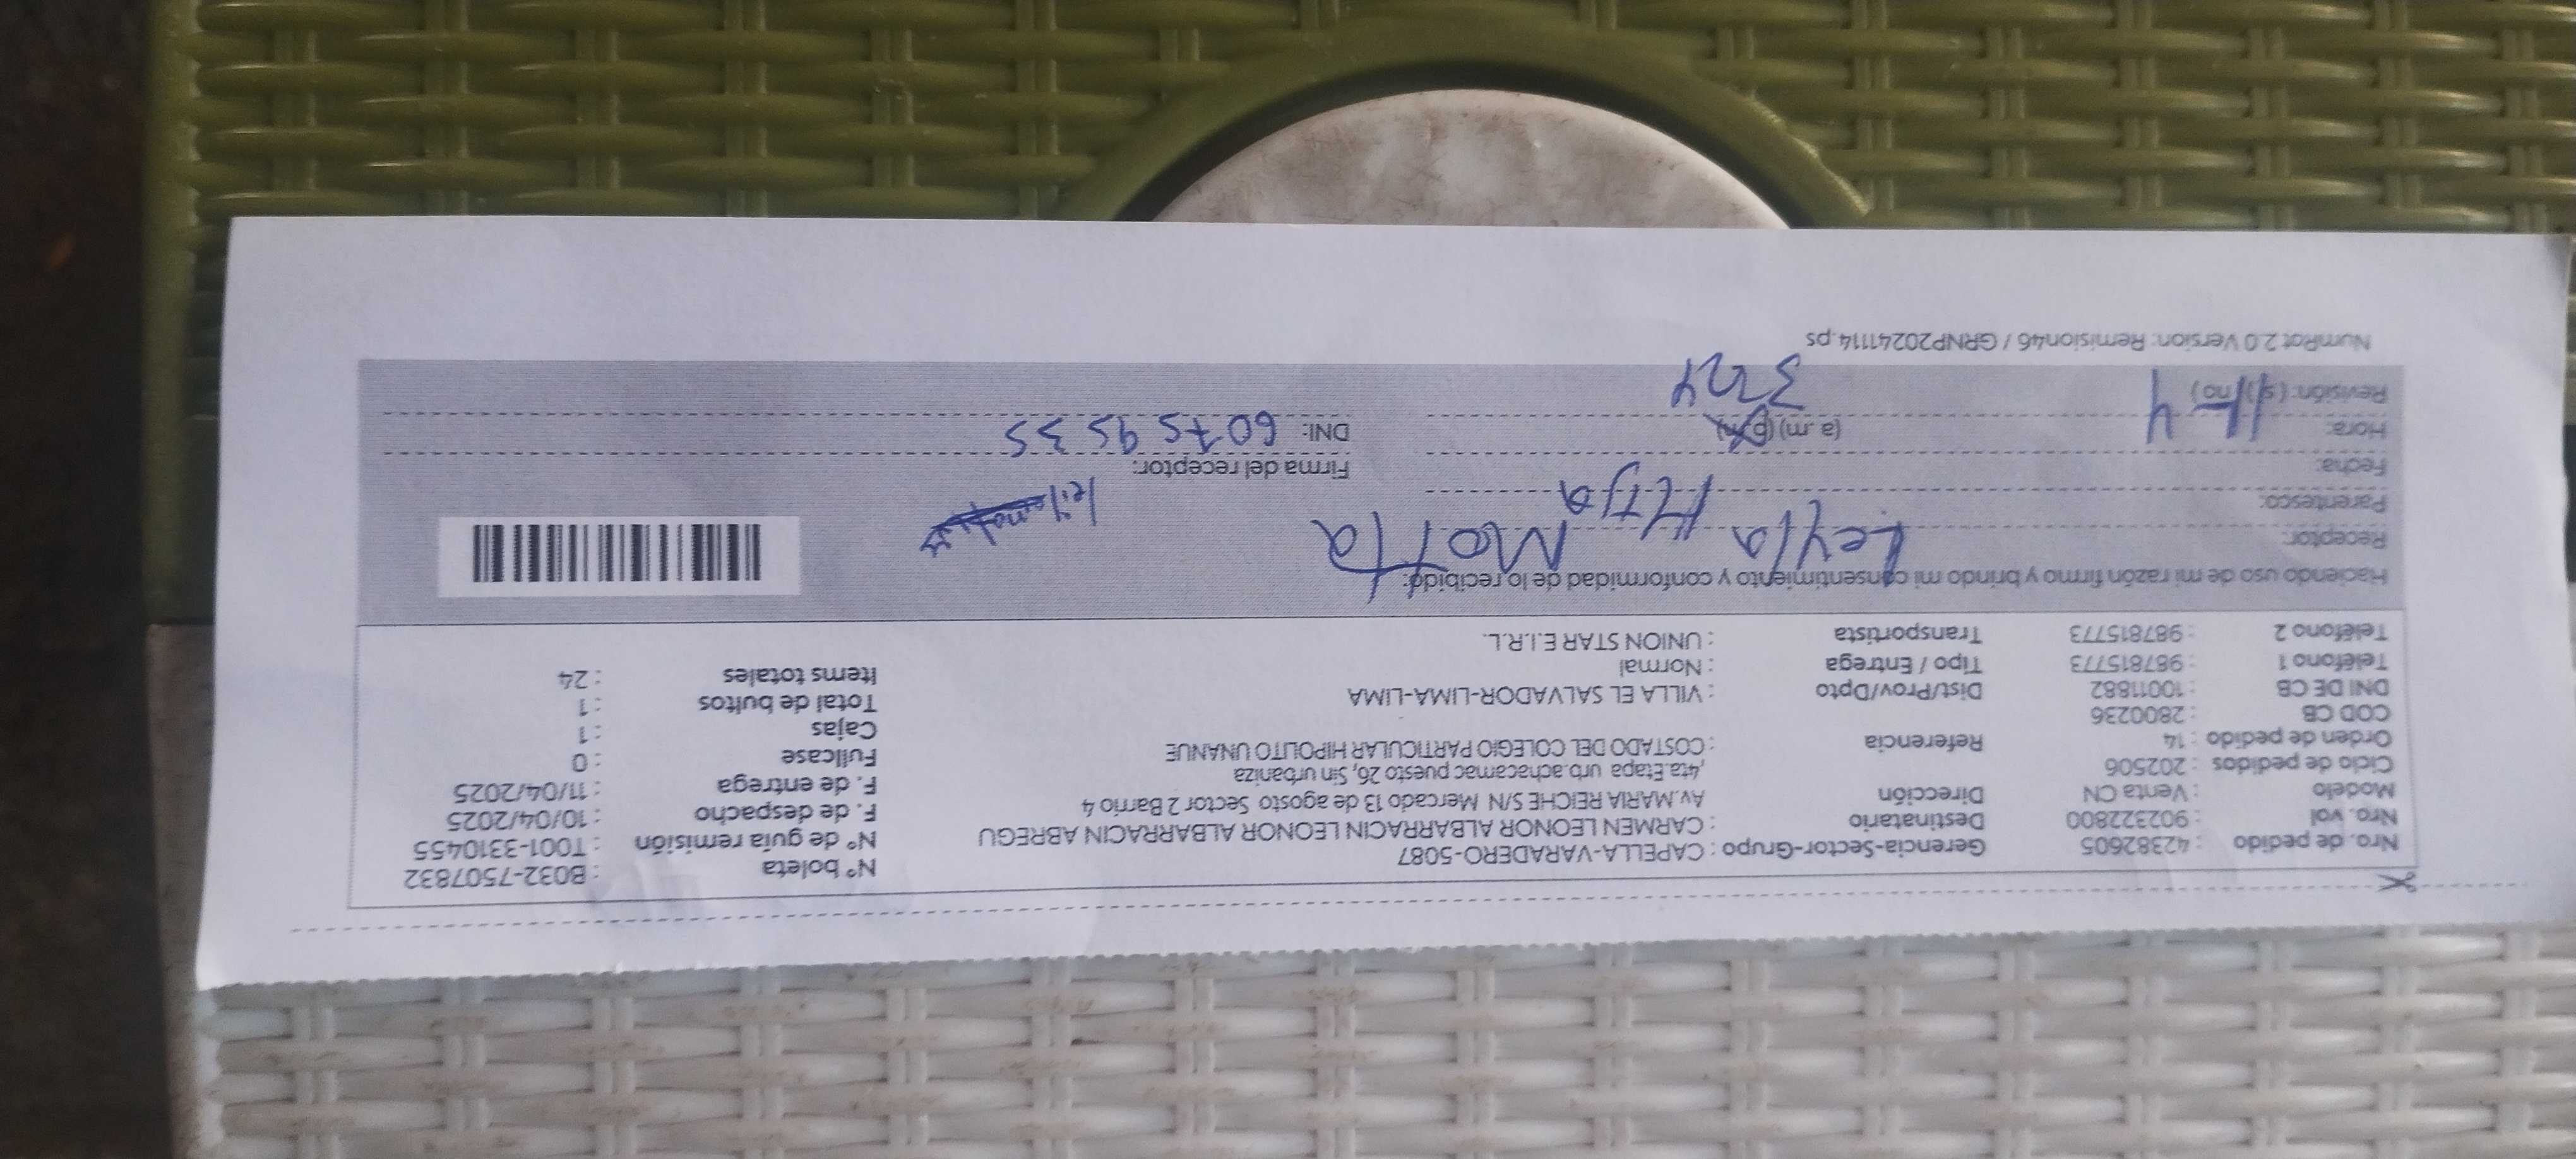 Nro. de pedido : 42382605 Gerencia-Sector-Grupo : CAPELLA-VARADERO-5087 N° boleta : B032-7507832
Nro. vol : 902322800 Destinatario : CARMEN LEONOR ALBARRACIN LEONOR ALBARRACIN ABREGU N° de guía remisión : T001-3310455
Modelo : Venta CN Dirección Av.MARIA REICHE S/N Mercado 13 de agosto Sector 2 Barrio 4 F. de despacho : 10/04/2025
Ciclo de pedidos : 202506 ,4ta.Etapa urb.achacamac puesto 26, Sin urbaniza F. de entrega : 11/04/2025
Orden de pedido : 14 Referencia : COSTADO DEL COLEGIO PARTICULAR HIPOLITO UNANUE Fullcase : 0
COD CB : 2800236 Cajas : 1
DNI DE CB : 10011882 Dist/Prov/Dpto : VILLA EL SALVADOR-LIMA-LIMA Total de bultos : 1
Teléfono 1 : 987815773 Tipo / Entrega : Normal Items totales : 24
Teléfono 2 : 987815773 Transportista : UNION STAR E.I.R.L.
Haciendo uso de mi razón firmo y brindo mi consentimiento y conformidad de lo recibido:
Receptor: Leyla Motta
Parentesco: Hija
Fecha: Firma del receptor:
Hora: 11-4 (a.m) (p.m) DNI: 60759535
Revisión: (si) (no)
NumRot 2.0 Version: Remision46 / GRNP20241114.ps